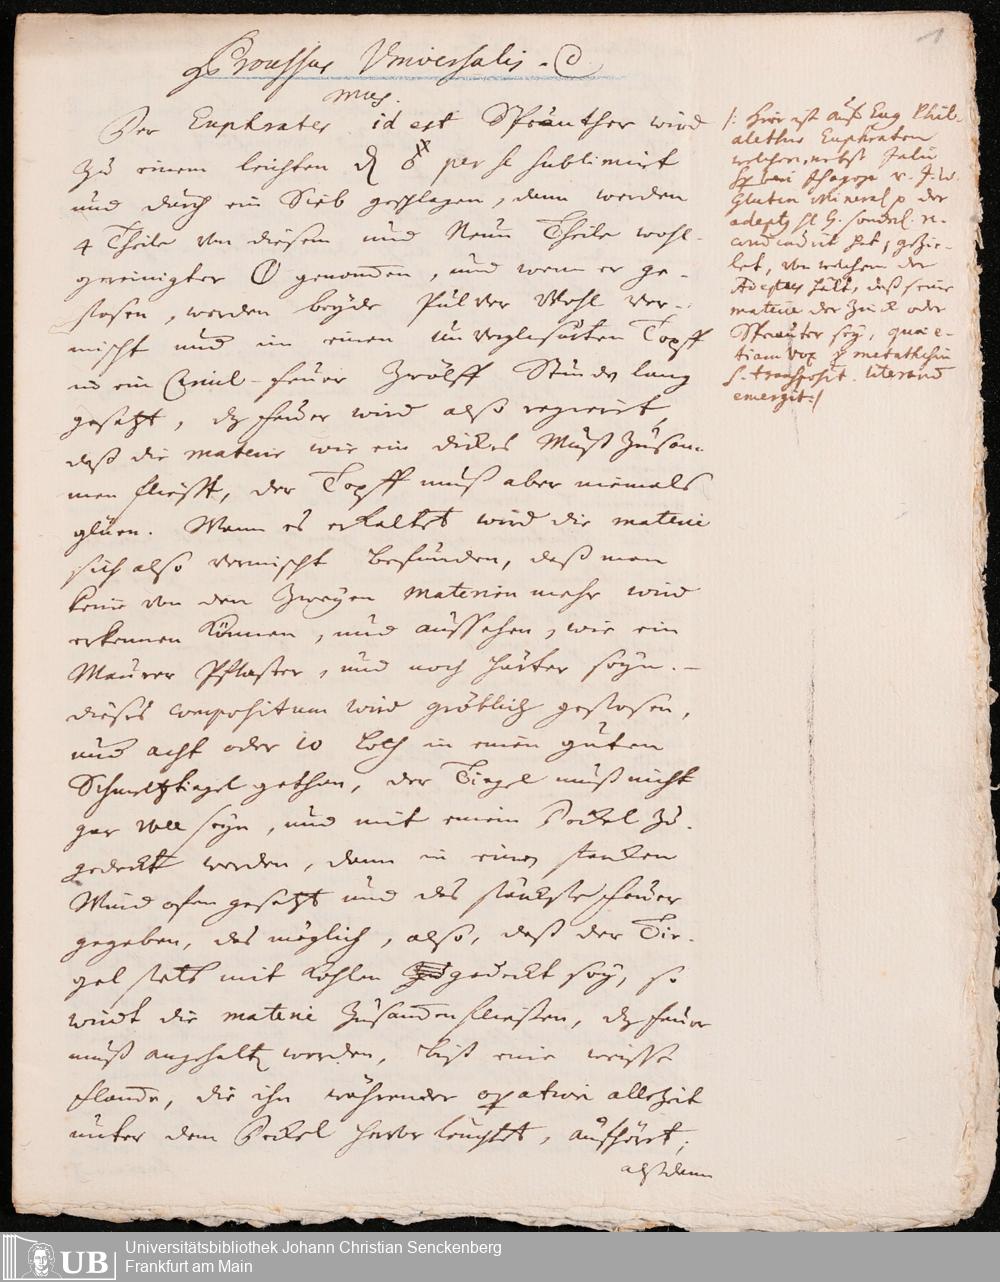 Processus Universalis.
mus.
Der Euphrates id est Spiauther wird
zu einem leichten per se sublimirt
und durch ein Sieb geschlagen, dann werden
4 Theile von diesem und Neun Theile wohl-
gereinigter genommen, und wenn er ge-
stosen, werden beyde Pulver Wohl ver-
mischt und in einen unverglasurten Topff
in ein Circul-feuer Zwölff Stunden lang
gesetzt, dz feuer wird also regieret,
daß die materie wie ein dickes Muß zusam-
men fliesst, der Topff muß aber niemals
glüen. Wann es erkaltet wird die materie
sich also vermischt befinden, daß man
keine von den Zweyen Materien mehr wird
erkennen können, und aussehen, wie ein
Maurer Pflaster, und noch härter seyn.
dieses compositum wird gröblich gestosen,
und acht oder 10 Loth in einen guten
Schmeltztiegel gethan, der Tiegel muß nicht
gar voll seyn, und mit einem Deckel zu-
gedeckt werden, dann in einen starcken
Wind ofen gesetzt und das stärckste feuer
gegeben, das möglich, also, daß der Tie-
gel stets mit Kohlen gedeckt sey, so
wird die materie zusammenfliessen, dz feuer
muß angehalten werden, biß eine weisse
flamme, die ihn währender operation allezeit
unter dem Deckel hervor leuchtet, aufhöret,
alsdann
1
/: hier ist auf Eug Phil-
alethae Euphraten
welchen, nebst
Gluten Mineral der
adeptus
hat, gezie-
let, von welchem der
Adeptus hält, daß seine
materie der Zinck oder
Spiauter sey, quae e-
tiam vox p metathesin
s. transposit. literarum
emergit :/
Universitätsbibliothek Johann Christian Senckenberg
Frankfurt am Main
UB